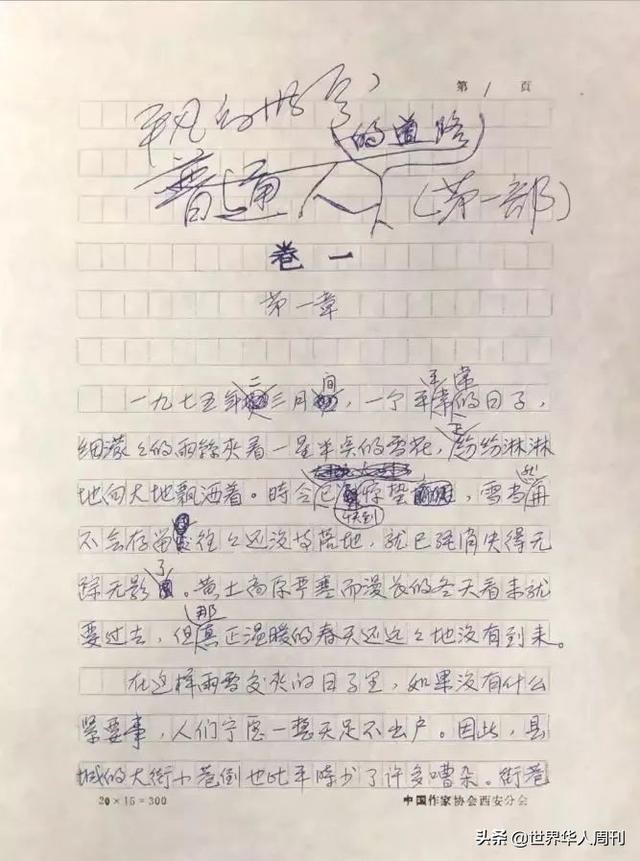 第 1 頁
平凡的世界
(的道路)
普通人 (第一部)
卷一
第一章
二 间 平常
一九七五年三月,一个平常的日子,
细濛々的雨丝夹着一星半点的雪花,正纷纷淋淋
地向大地飘洒着。時令已快到惊蛰,雪当然再
不会存留,往々还没等落地,就已经消失得无
踪无影了。黄土高原严寒而漫长的冬天看来就
要过去,但那真正温暖的春天还远々地没有到来。
在这样雨雪交夹的日子里,如果没有什么
紧要事,人们宁愿一整天足不出户。因此,县
城的大街小巷倒也比平時少了许多嘈杂。街巷
20×15=300 中国作家协会西安分会
头条@世界华人周刊